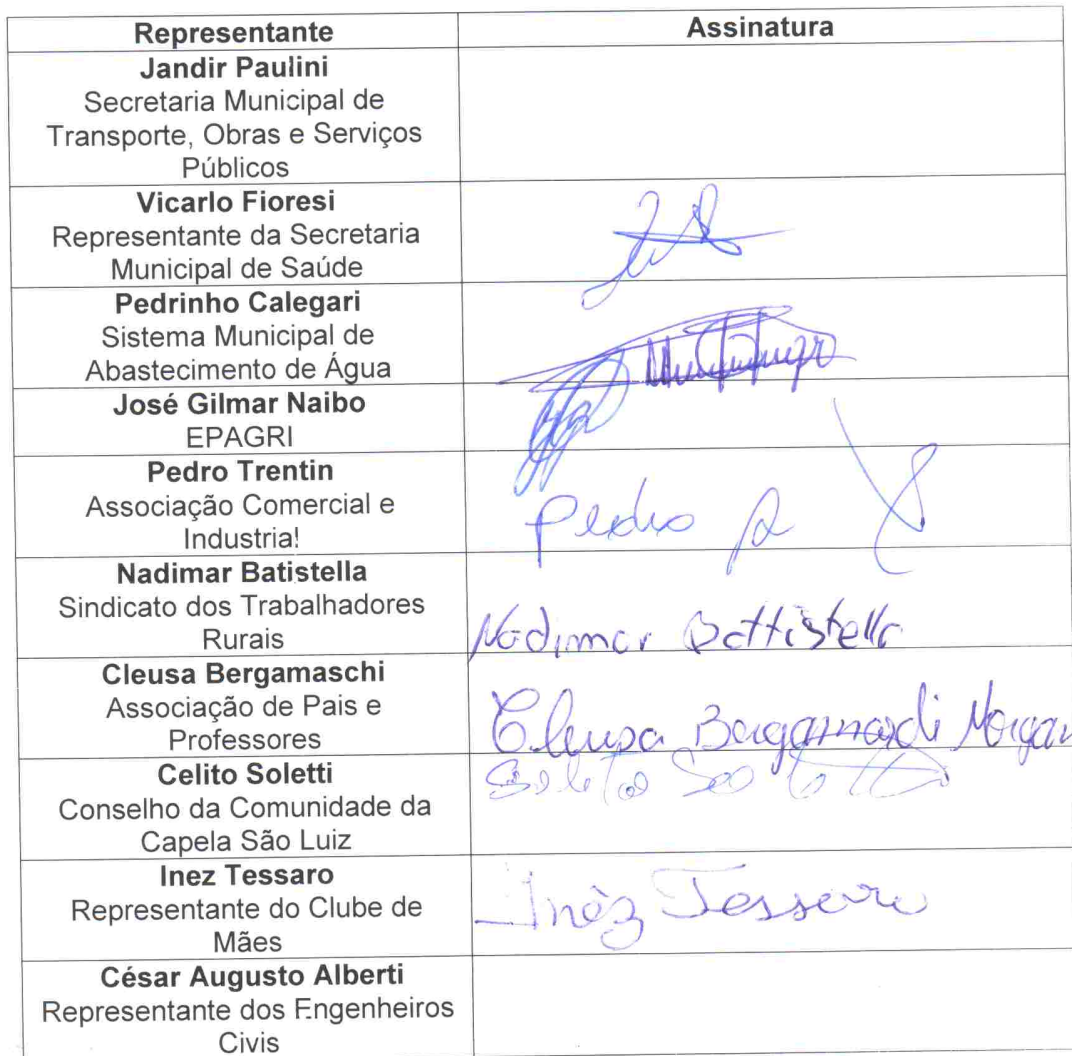 Representante Assinatura
Jandir Paulini
Secretaria Municipal de
Transporte, Obras e Serviços
Públicos
Vicarlo Fioresi
Representante da Secretaria
Municipal de Saúde
Pedrinho Calegari
Sistema Municipal de
Abastecimento de Água
José Gilmar Naibo
EPAGRI
Pedro Trentin
Associação Comercial e
Industrial
Pedro
Nadimar Batistella
Sindicato dos Trabalhadores
Rurais
Nadimar Battistella
Cleusa Bergamaschi
Associação de Pais e
Professores
Cleusa
Celito Soletti
Conselho da Comunidade da
Capela São Luiz
Inez Tessaro
Representante do Clube de
Mães
Inêz Tessaro
César Augusto Alberti
Representante dos Engenheiros
Civis